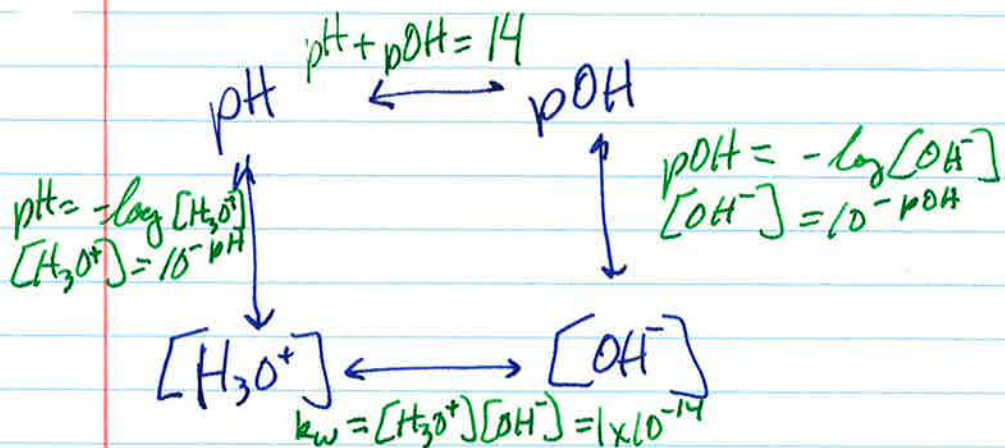 pH + pOH = 14
pH ⟷ pOH
pH = -log [H₃O⁺]
[H₃O⁺] = 10⁻ᵖᴴ
pOH = -log [OH⁻]
[OH⁻] = 10⁻ᵖᴼᴴ
[H₃O⁺] ⟷ [OH⁻]
kw = [H₃O⁺][OH⁻] = 1x10⁻¹⁴